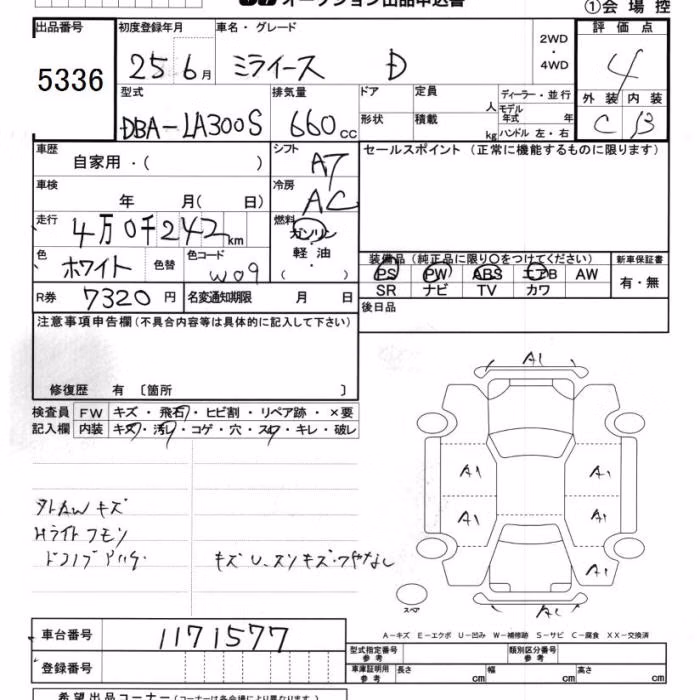 オークション出品申込書
①会場控
出品番号 初度登録年月 車名・グレード 2WD・4WD 評価点
5336 25 6月 ミライース D 4
型式 排気量 ドア 定員 人 ディーラー・並行 外装 内装
モデル年式 年
DBA-LA300S 660cc 形状 積載 kg ハンドル 左・右 C B
車歴 シフト セールスポイント (正常に機能するものに限ります)
自家用・( ) AT
車検 冷房
年 月( 日) AC
走行 燃料
4万0千242km ガソリン
色 色替 色コード 軽油 装備品(純正品に限り○をつけてください) 新車保証書
ホワイト W09 ( ) PS PW ABS エアB AW 有・無
SR ナビ TV カワ
R券 7320円 名変通知期限 月 日 後日品
注意事項申告欄(不具合内容等は具体的に記入して下さい)
修復歴 有 〔箇所 〕
検査員 FW キズ・飛石・ヒビ割・リペア跡・×要
記入欄 内装 キズ・汚レ・コゲ・穴・スレ・キレ・破レ
A1
A1 A1
A1 A1
A1
A1
スペア
キズ
Hライト
キズ U.スリキズ・ツヤなし
A-キズ E-エクボ U-凹み W-補修跡 S-サビ C-腐食 XX-交換済
車台番号 1171577
型式指定番号 参考 類別区分番号 参考
登録番号 車庫証明用 参考 長さ cm 幅 cm 高さ cm
希望出品コーナー(コーナーは各会場により異なります)